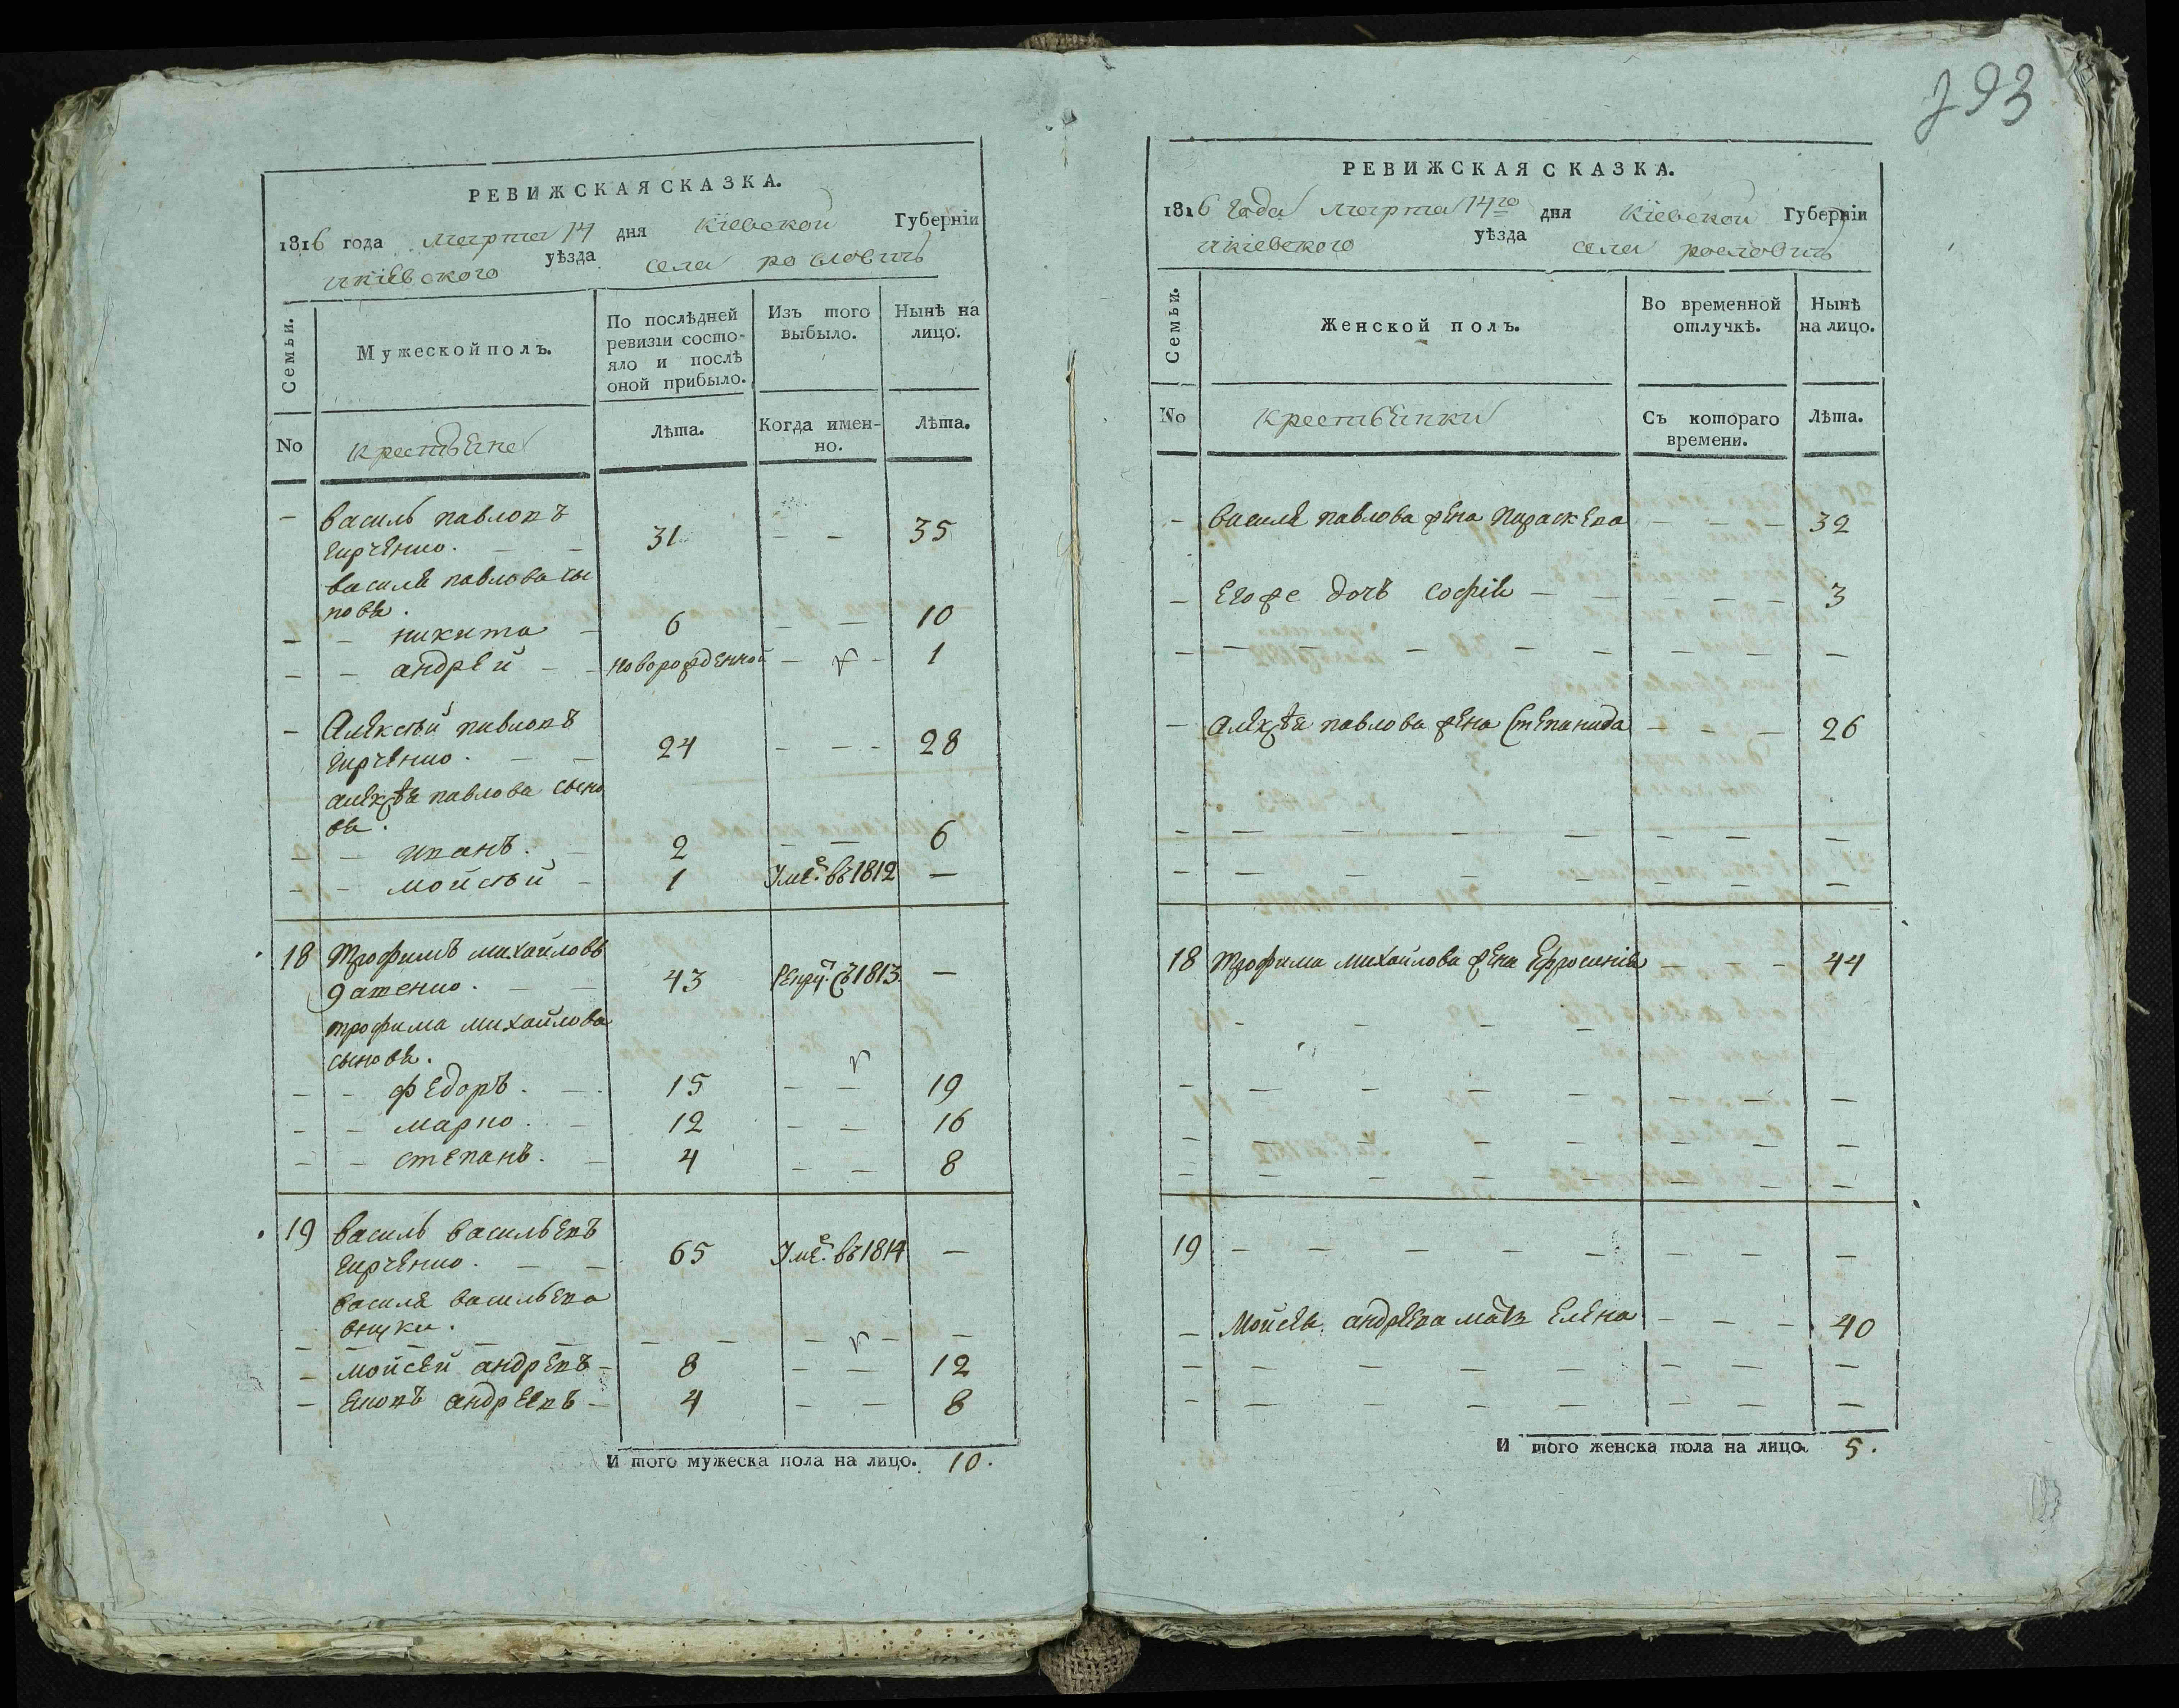 793
РЕВИЖСКАЯ СКАЗКА.
1816 года марта 14 дня Кіевской Губерніи
икіевского уѣзда села рословичъ
Семьи.
Мужеской полъ.
По послѣдней ревизіи состояло и послѣ оной прибыло.
Изъ того выбыло.
Нынѣ на лицо.
No
крестьяне
Лѣта.
Когда именно.
Лѣта.
- василь павловъ
- - 31 - - 35
василя павлова сы
новя.
- - никита - 6 - - 10
- - андрей - - новорожденной - - 1
- Алексѣй павловъ
- - 24 - - - 28
алексѣя павлова сыно
вя.
- - иванъ. - 2 - - 6
- - мойсѣй - 1 Уме. въ 1812 —
18 Трофимъ михайловъ
- - 43 Рекру. съ 1813. —
трофима михайлова
сыновя.
- - федоръ. - 15 - - 19
- - марко. - 12 - - 16
- - степанъ. - 4 - - 8
19 василь васильевъ
- - 65 Уме. въ 1814 —
василя васильева
внуки.
- мойсей андревъ - 8 - - 12
- яковъ андреевъ - 4 - - 8
И того мужеска пола на лицо. 10.
РЕВИЖСКАЯ СКАЗКА.
1816 года марта 14го дня Кіевской Губерніи
икіевского уѣзда села рословичъ
Семьи.
Женской полъ.
Во временной отлучкѣ.
Нынѣ на лицо.
No
крестьянки
Съ котораго времени.
Лѣта.
- василя павлова жена параскева - - - 32
- Его же дочь софія - - - 3
- алексѣя павлова жена степанида - - - 26
18 трофима михайлова жена Ефросинія - - - 44
19 - - - - - - - —
- Мойсея андреева мать Елена - - - 40
И того женска пола на лицо. 5.